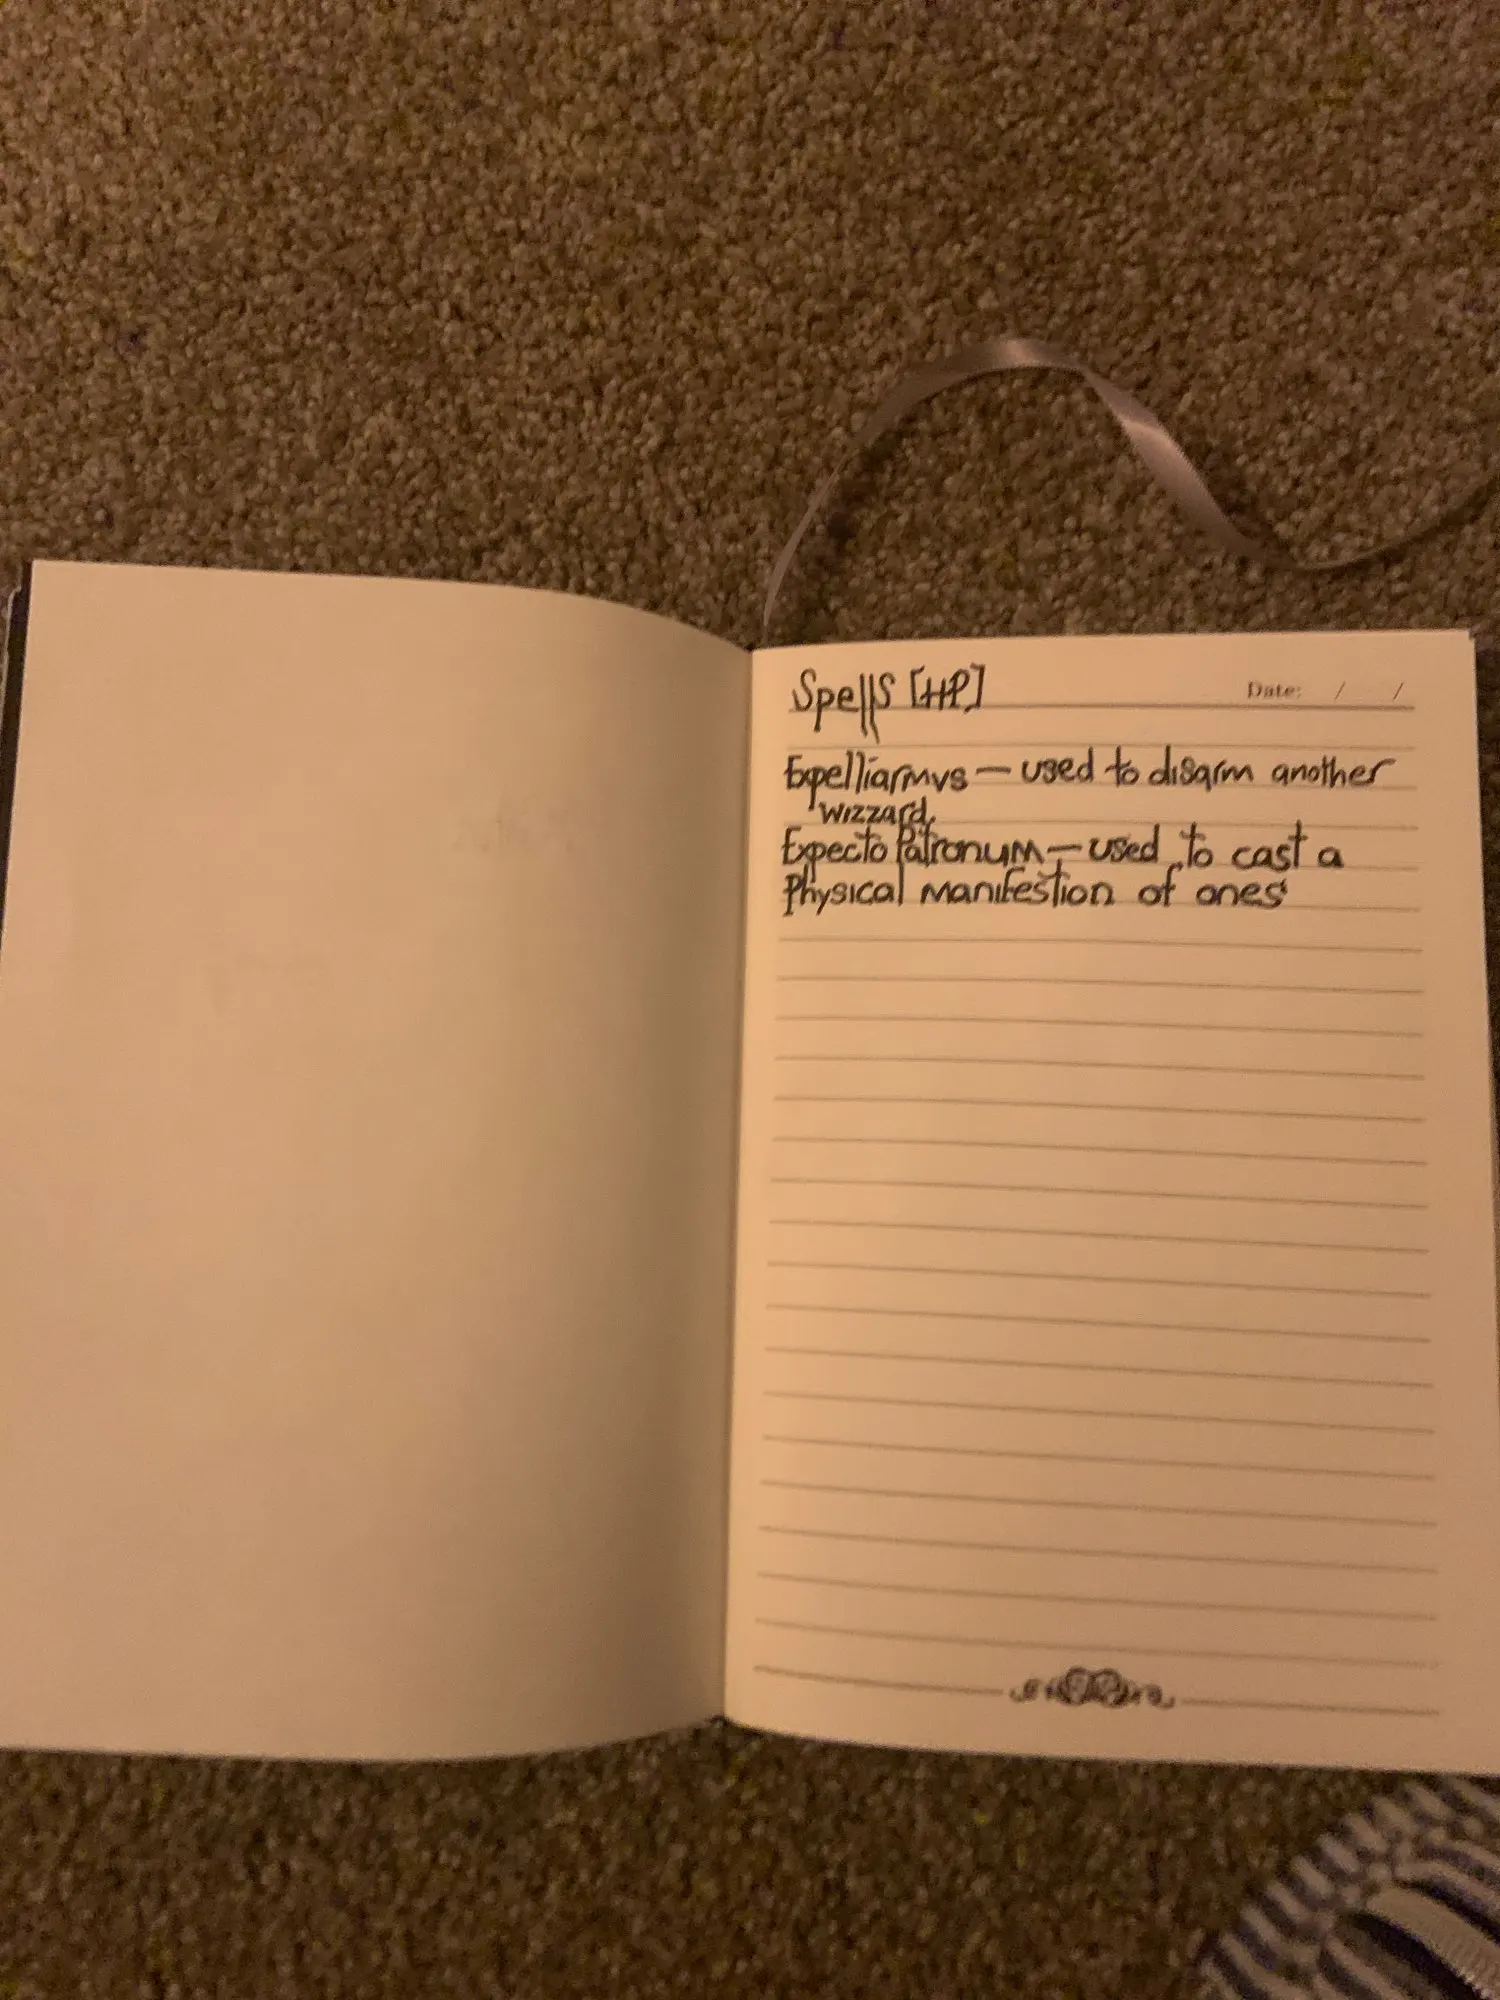 Spells [HP]
Date: / /
Expelliarmus — used to disarm another
wizzard.
Expecto Patronum — used to cast a
Physical manifestion of ones'